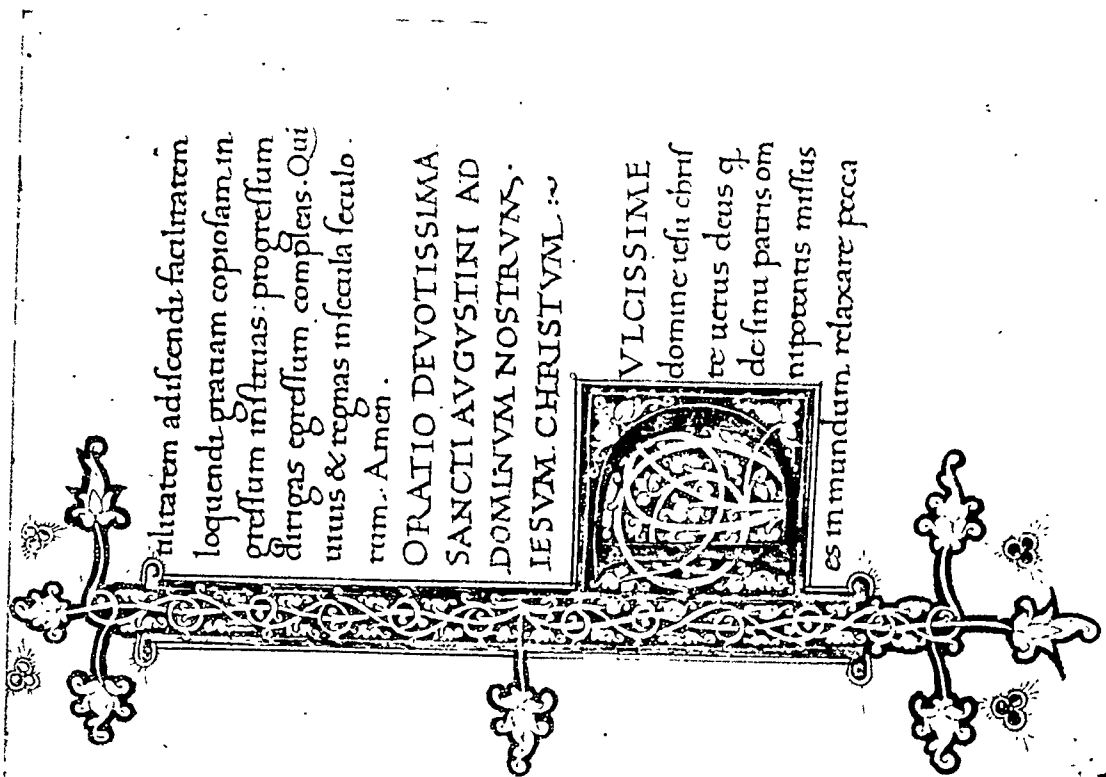 tilitatem adiscendi facilitatem
loquendi gratiam copiosam. in
gressum instruas: progressum
dirigas egressum compleas. Qui
uiuis & regnas in secula seculo.
rum. Amen.
ORATIO DEVOTISSIMA
SANCTI AVGVSTINI AD
DOMINVM NOSTRVM.
IESVM. CHRISTVM :~
DVLCISSIME
domine iesu chris
te uerus deus q.
de sinu patris om
nipotentis missus
es in mundum. relaxare pecca